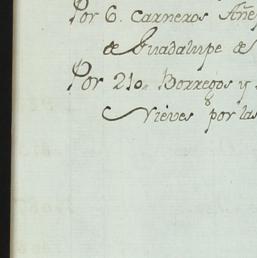 Por 6. Carneros Añe
de Guadalupe de
Por 210.. Borregos y
Nieves por las